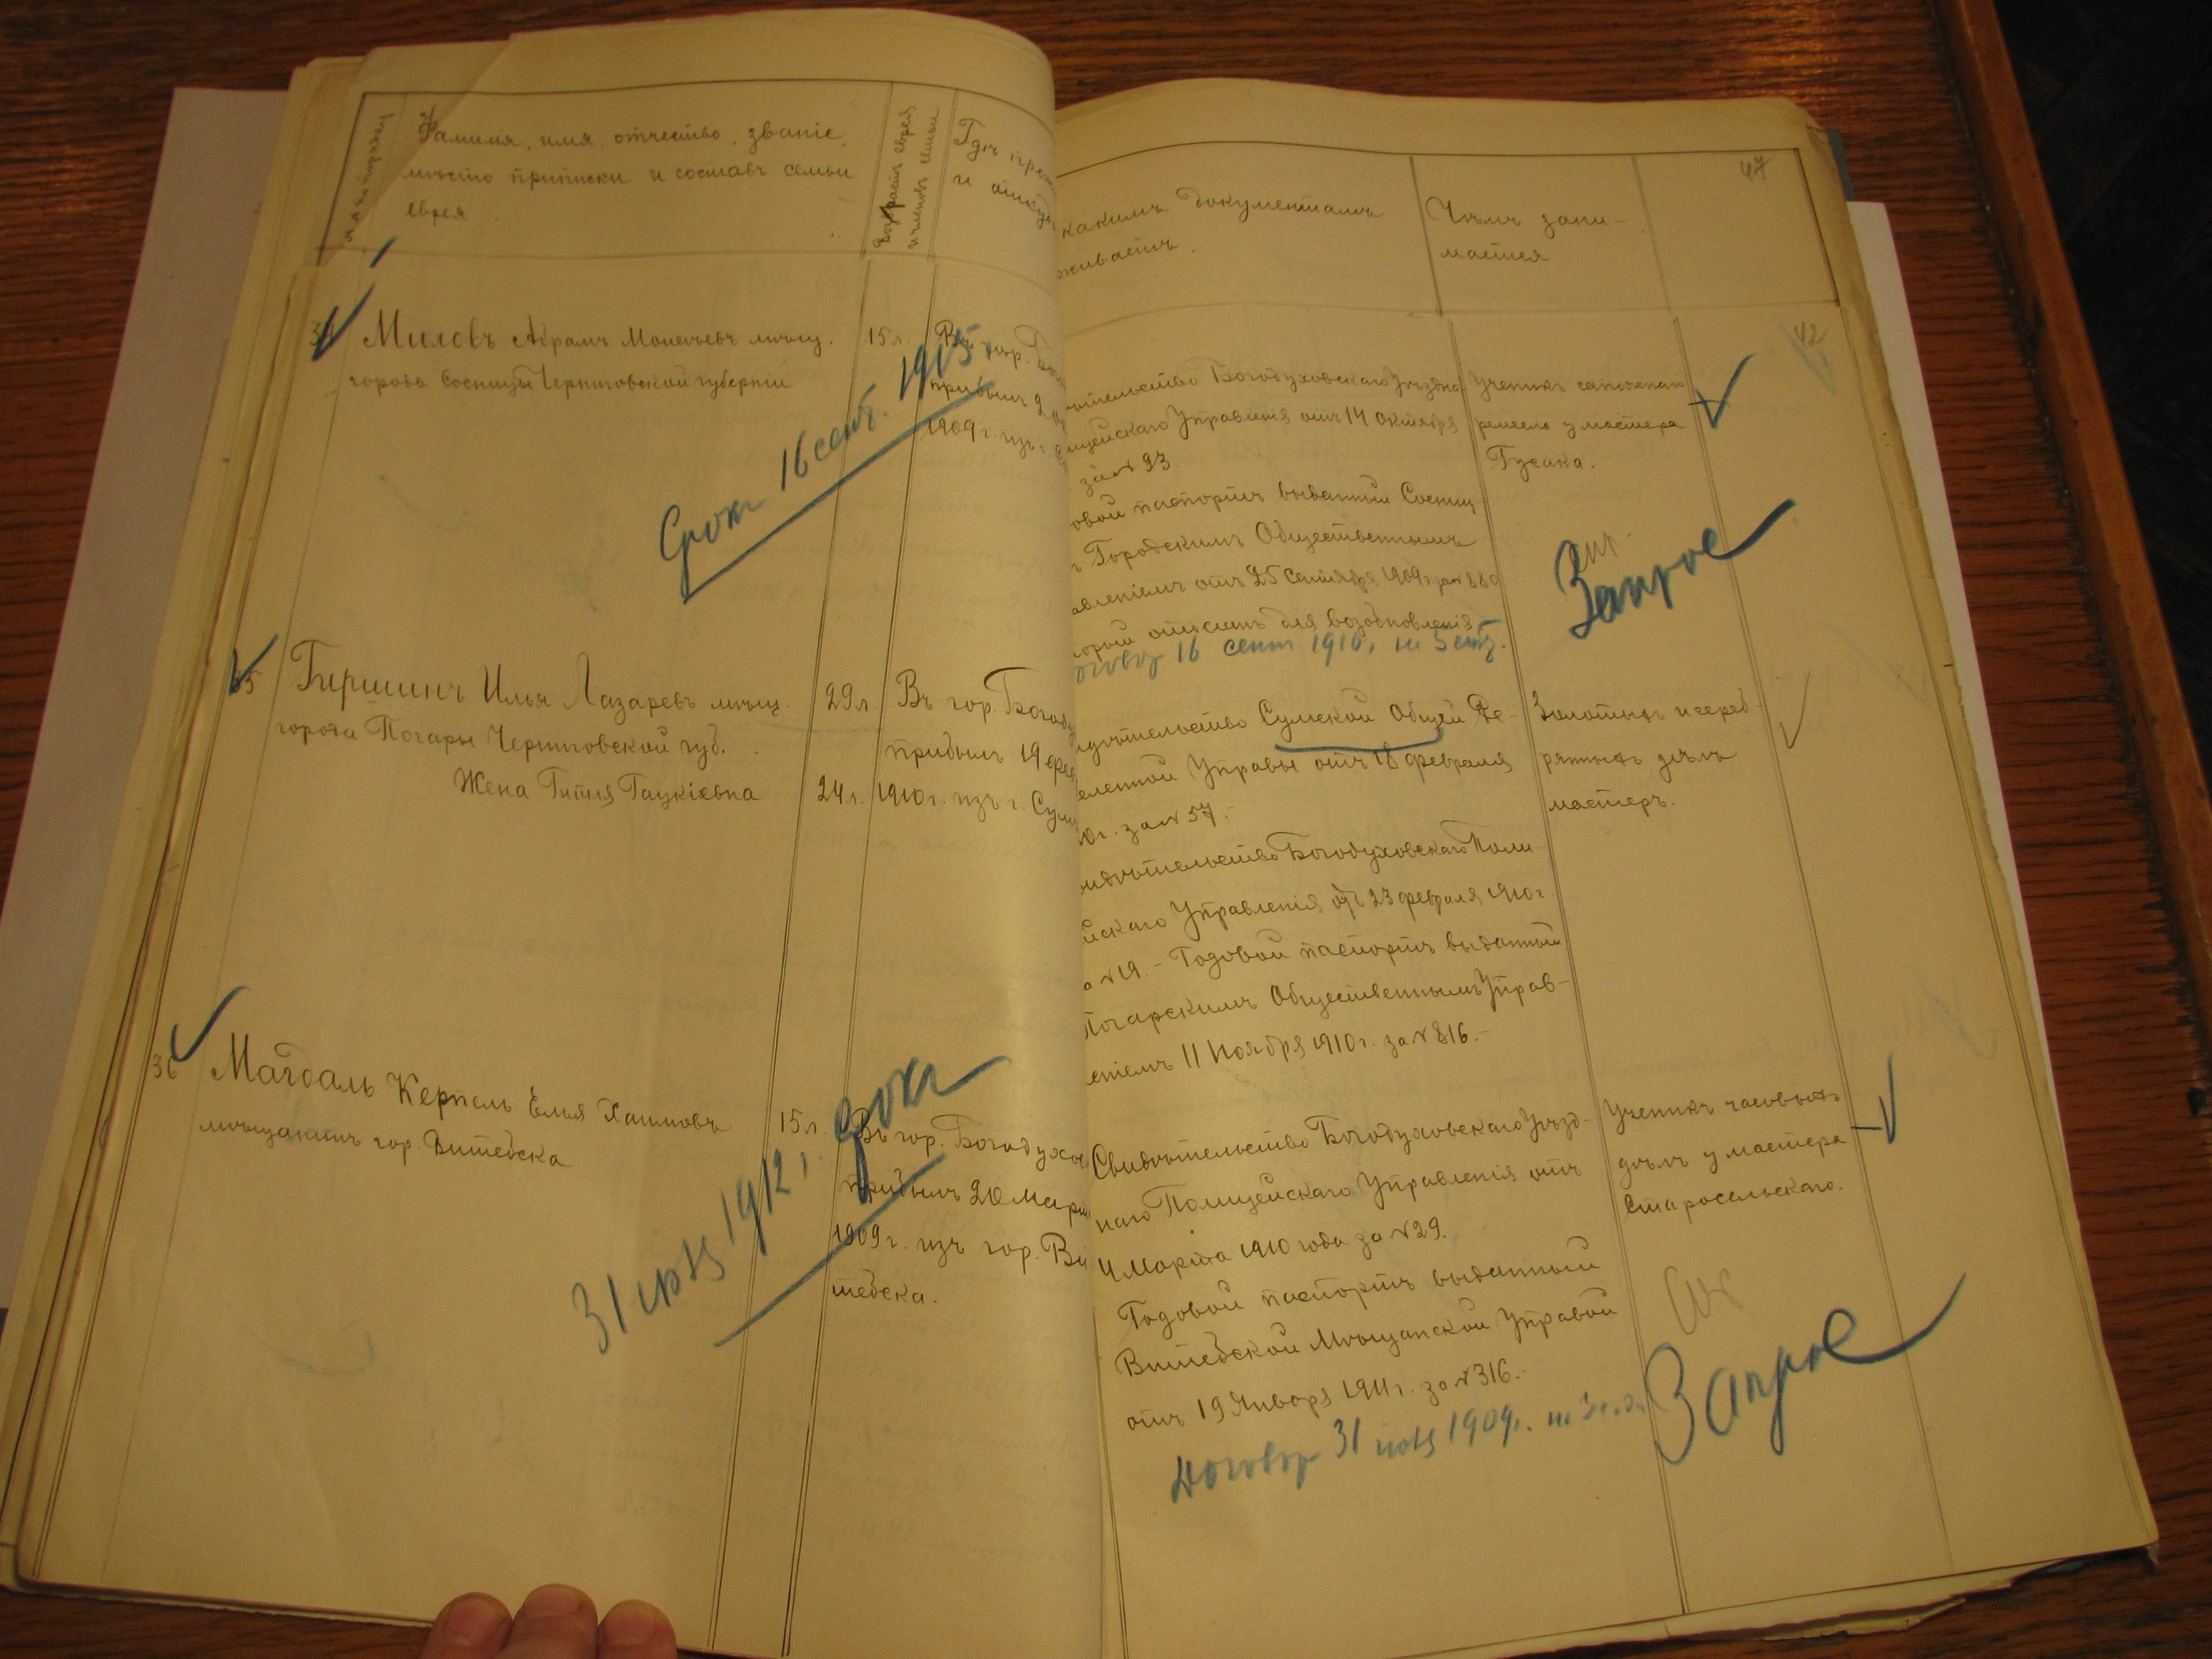 Фамилія, имя, отчество, званіе,
мѣсто приписки и составъ семьи
еврея
Возрастъ еврея
и членовъ семьи
Гдѣ
и
какимъ документамъ
живаетъ.
Чѣмъ зани-
мается
47
42
34
Миловъ Абрамъ мѣщ.
города Сосницы Черниговской губерніи
15 л.
Въ гор.
прибылъ
1909 г. изъ г.
Срокъ 16 сент. 1915
Богодуховскаго Уѣздна
Управленія отъ 14 Октября
за № 23.
овой паспортъ выданный Сосниц
Городскимъ Общественнымъ
авленіемъ отъ 25 Сентября 1909 г. за № 880
для возобновленія
16 сент 1910, на 5
Ученикъ сапожнаго
ремесла у мастера
Гусака.
Запрос
35
Гиршинъ Илья Лазаревъ мѣщ.
города Погары Черниговской губ.
Жена Гитля Гацкіевна
29 л.
24 л.
Въ гор. Богоду
прибылъ 19 фев
1910 г. изъ г. Сум
идѣтельство Сумской Общей Ре-
сленной Управы отъ 18 февраля
10 г. за № 57.
идѣтельство Богодуховскаго Поли-
йскаго Управленія отъ 23 февраля 1910 г.
а № 19. - Годовой паспортъ выданный
Погарскимъ Общественнымъ Управ-
еніемъ 11 Ноября 1910 г. за № 816. -
Золотыхъ и сереб-
ряныхъ дѣлъ
мастеръ.
36
Магдаль Керпель Елья Хаимовъ
мѣщанинъ гор. Витебска
15 л.
Въ гор. Богодухов
прибылъ 20 Мар
1909 г. изъ гор. Ви
тебска.
31 1912, Срокъ
Свидѣтельство Богодуховскаго Уѣзд-
наго Полицейскаго Управленія отъ
4 Марта 1910 года за № 29.
Годовой паспортъ выданный
Витебской Мѣщанской Управой
отъ 19 Января 1911 г. за № 316. -
Договор 31 1909 г. на 3
Ученикъ часовыхъ
дѣлъ у мастера
Старосельскаго.
Запрос